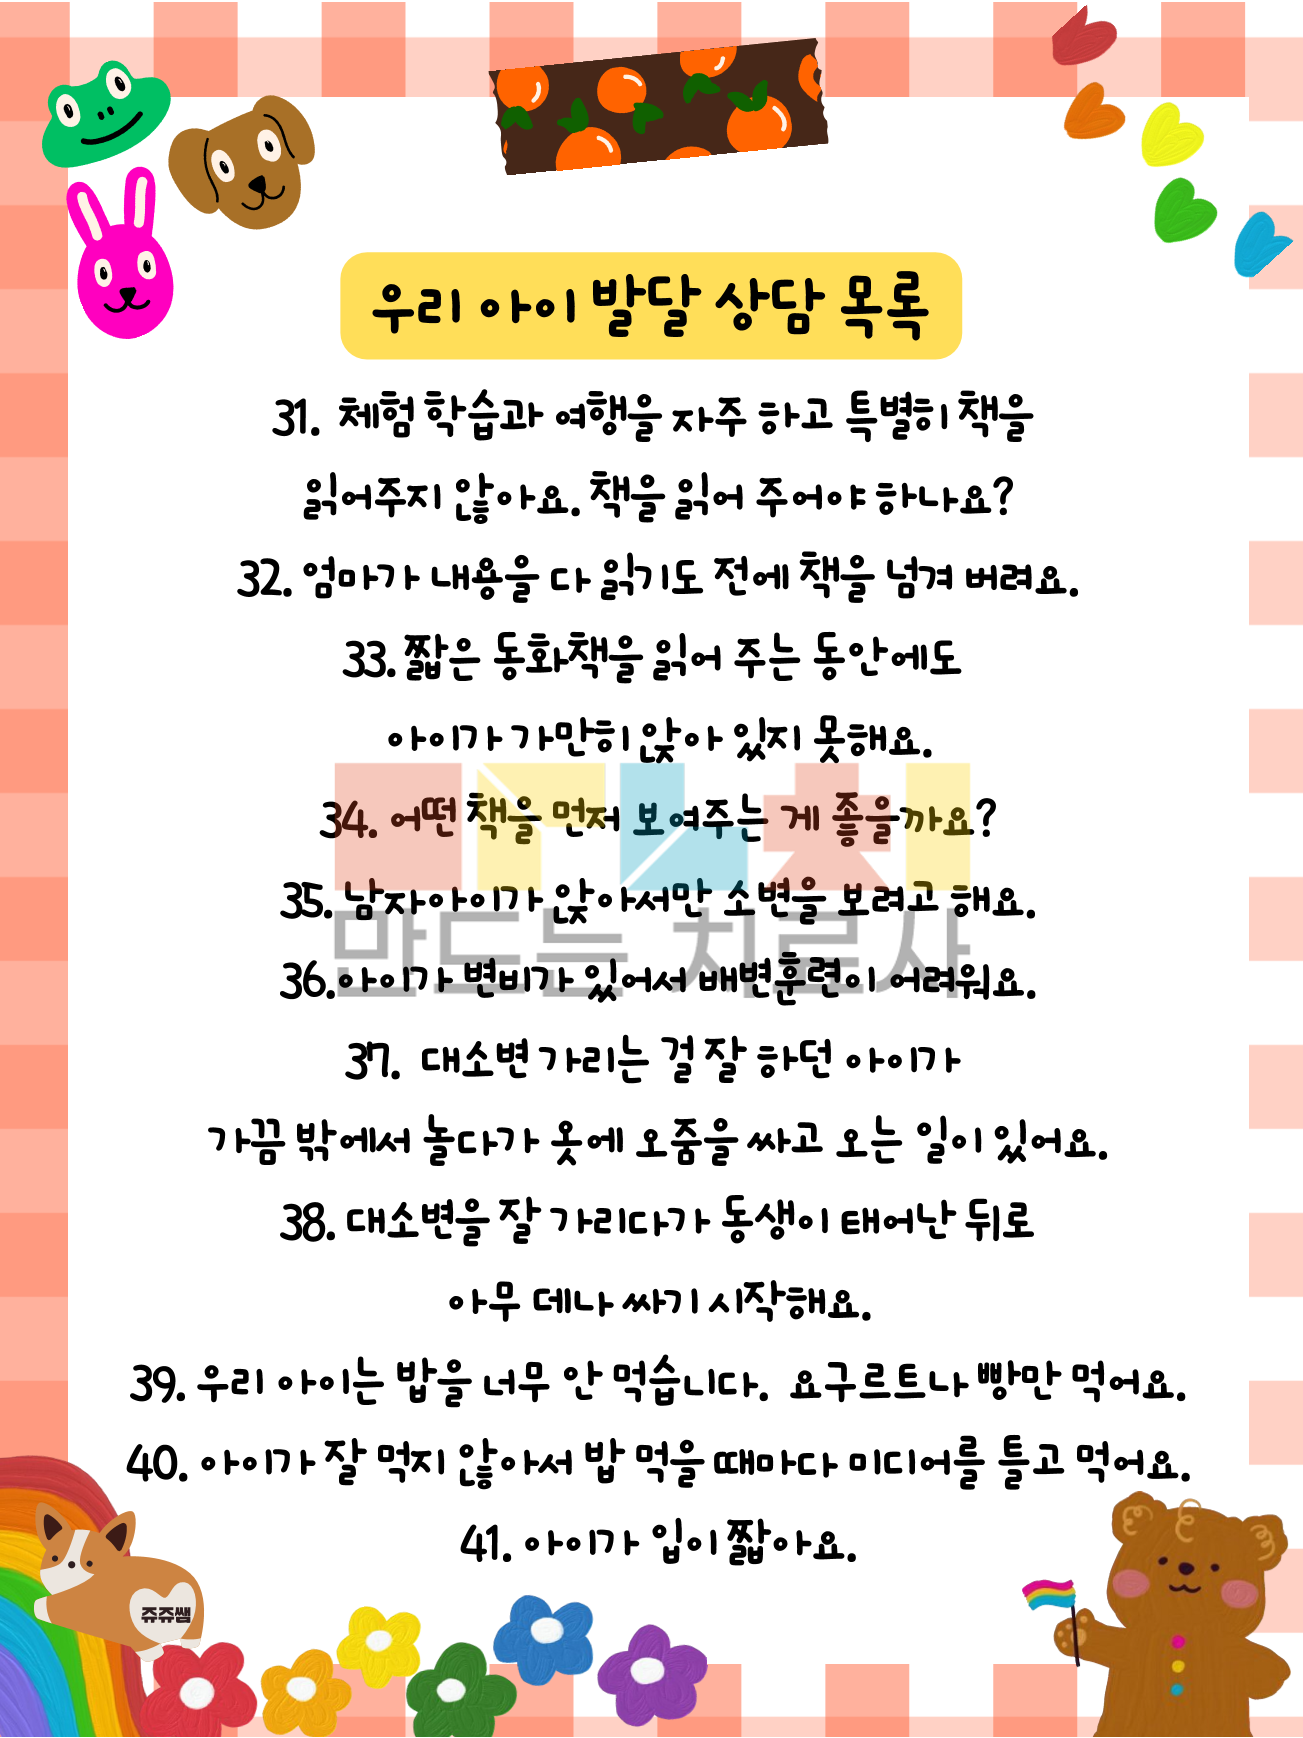 우리 아이 발달 상담 목록
31. 체험 학습과 여행을 자주 하고 특별히 책을
읽어주지 않아요. 책을 읽어 주어야 하나요?
32. 엄마가 내용을 다 읽기도 전에 책을 넘겨 버려요.
33. 짧은 동화책을 읽어 주는 동안에도
아이가 가만히 앉아 있지 못해요.
34. 어떤 책을 먼저 보여주는 게 좋을까요?
35. 남자아이가 앉아서만 소변을 보려고 해요.
만드는 치료사
36.아이가 변비가 있어서 배변훈련이 어려워요.
37. 대소변 가리는 걸 잘 하던 아이가
가끔 밖에서 놀다가 옷에 오줌을 싸고 오는 일이 있어요.
38. 대소변을 잘 가리다가 동생이 태어난 뒤로
아무 데나 싸기 시작해요.
39. 우리 아이는 밥을 너무 안 먹습니다. 요구르트나 빵만 먹어요.
40. 아이가 잘 먹지 않아서 밥 먹을 때마다 미디어를 틀고 먹어요.
41. 아이가 입이 짧아요.
쥬쥬쌤